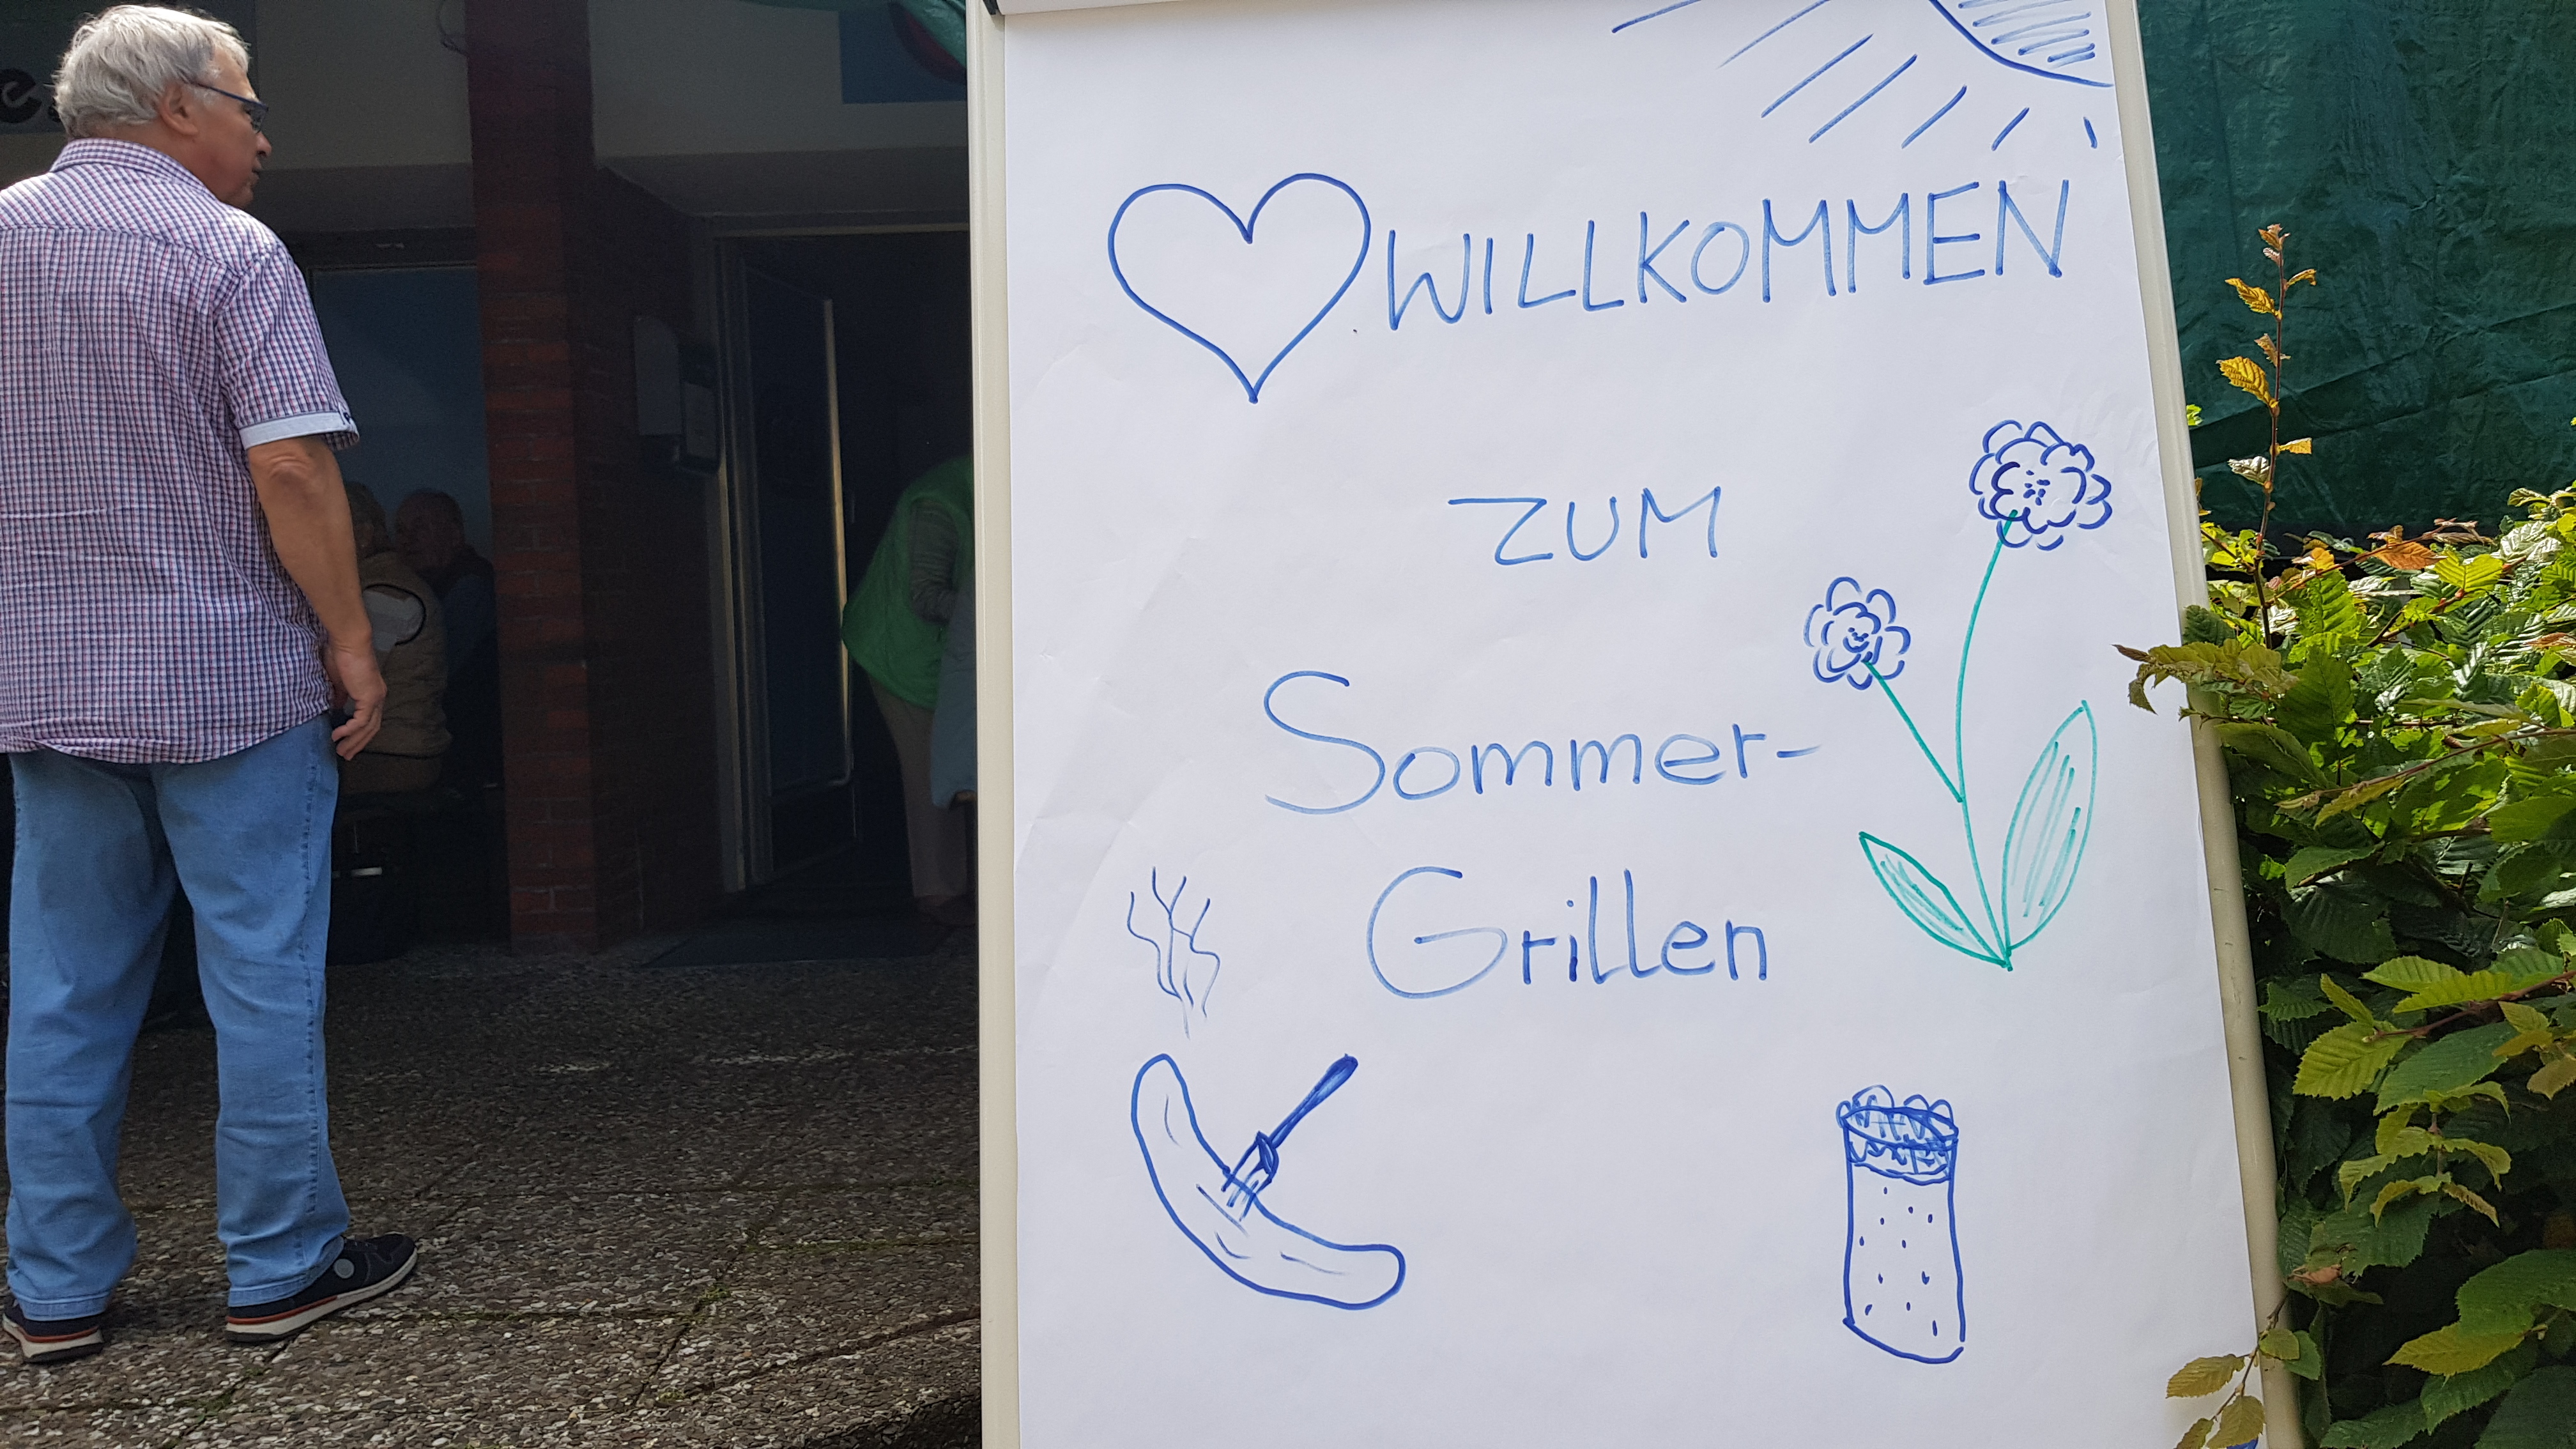 WILLKOMMEN
ZUM
Sommer-
Grillen